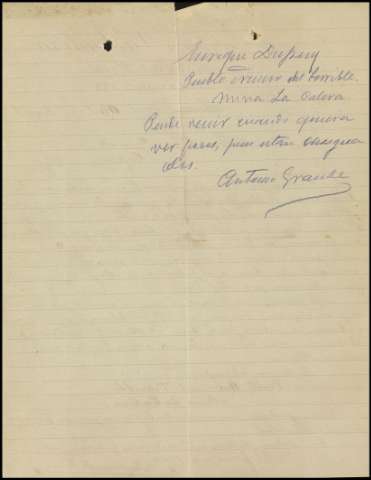 Enrique Dupuy
Pueblo nuevo del Terrible.
Mina La Calera
Puede venir cuando quiera
ver pues, pues estan
das.
Antonio Grande